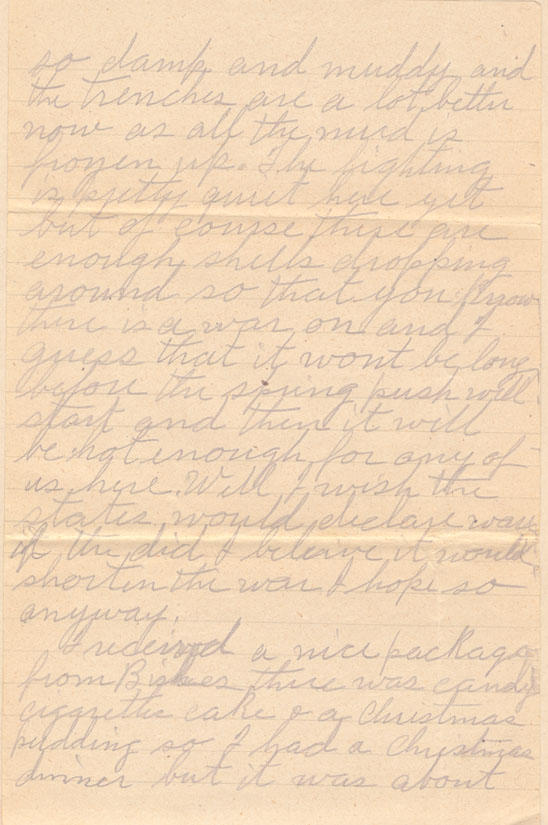 so damp and muddy and
the trenches are a lot better
now as all the mud is
frozen up. The fighting
is pretty quiet here yet
but of course there are
enough shells dropping
around so that you know
there is a war on and I
guess that it wont be long
before the spring push will
start and then it will
be hot enough for any of
us here. Well I wish the
states would declare war
if the did I beleive it would
shorten the war I hope so
anyway.
I received a nice package
from there was candy
cigarettes cake & a Christmas
pudding so I had a Christmas
dinner but it was about